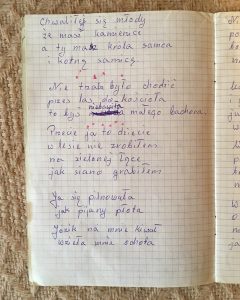 Chwaliłeś się młody
że masz kamienice
a ty masz króla samca
i kotną samicę.
Nie trzeba było chodzić
przez las do kościoła
to byś nie nosiła małego bachora
Przecie ja to dziecie
w lesie nie zrobiłem
na zielonej łące
jak siano grabiłem
Ja się pilnowała
jak pijany płota
Józik na mnie kiwał
wzieła mnie ochota